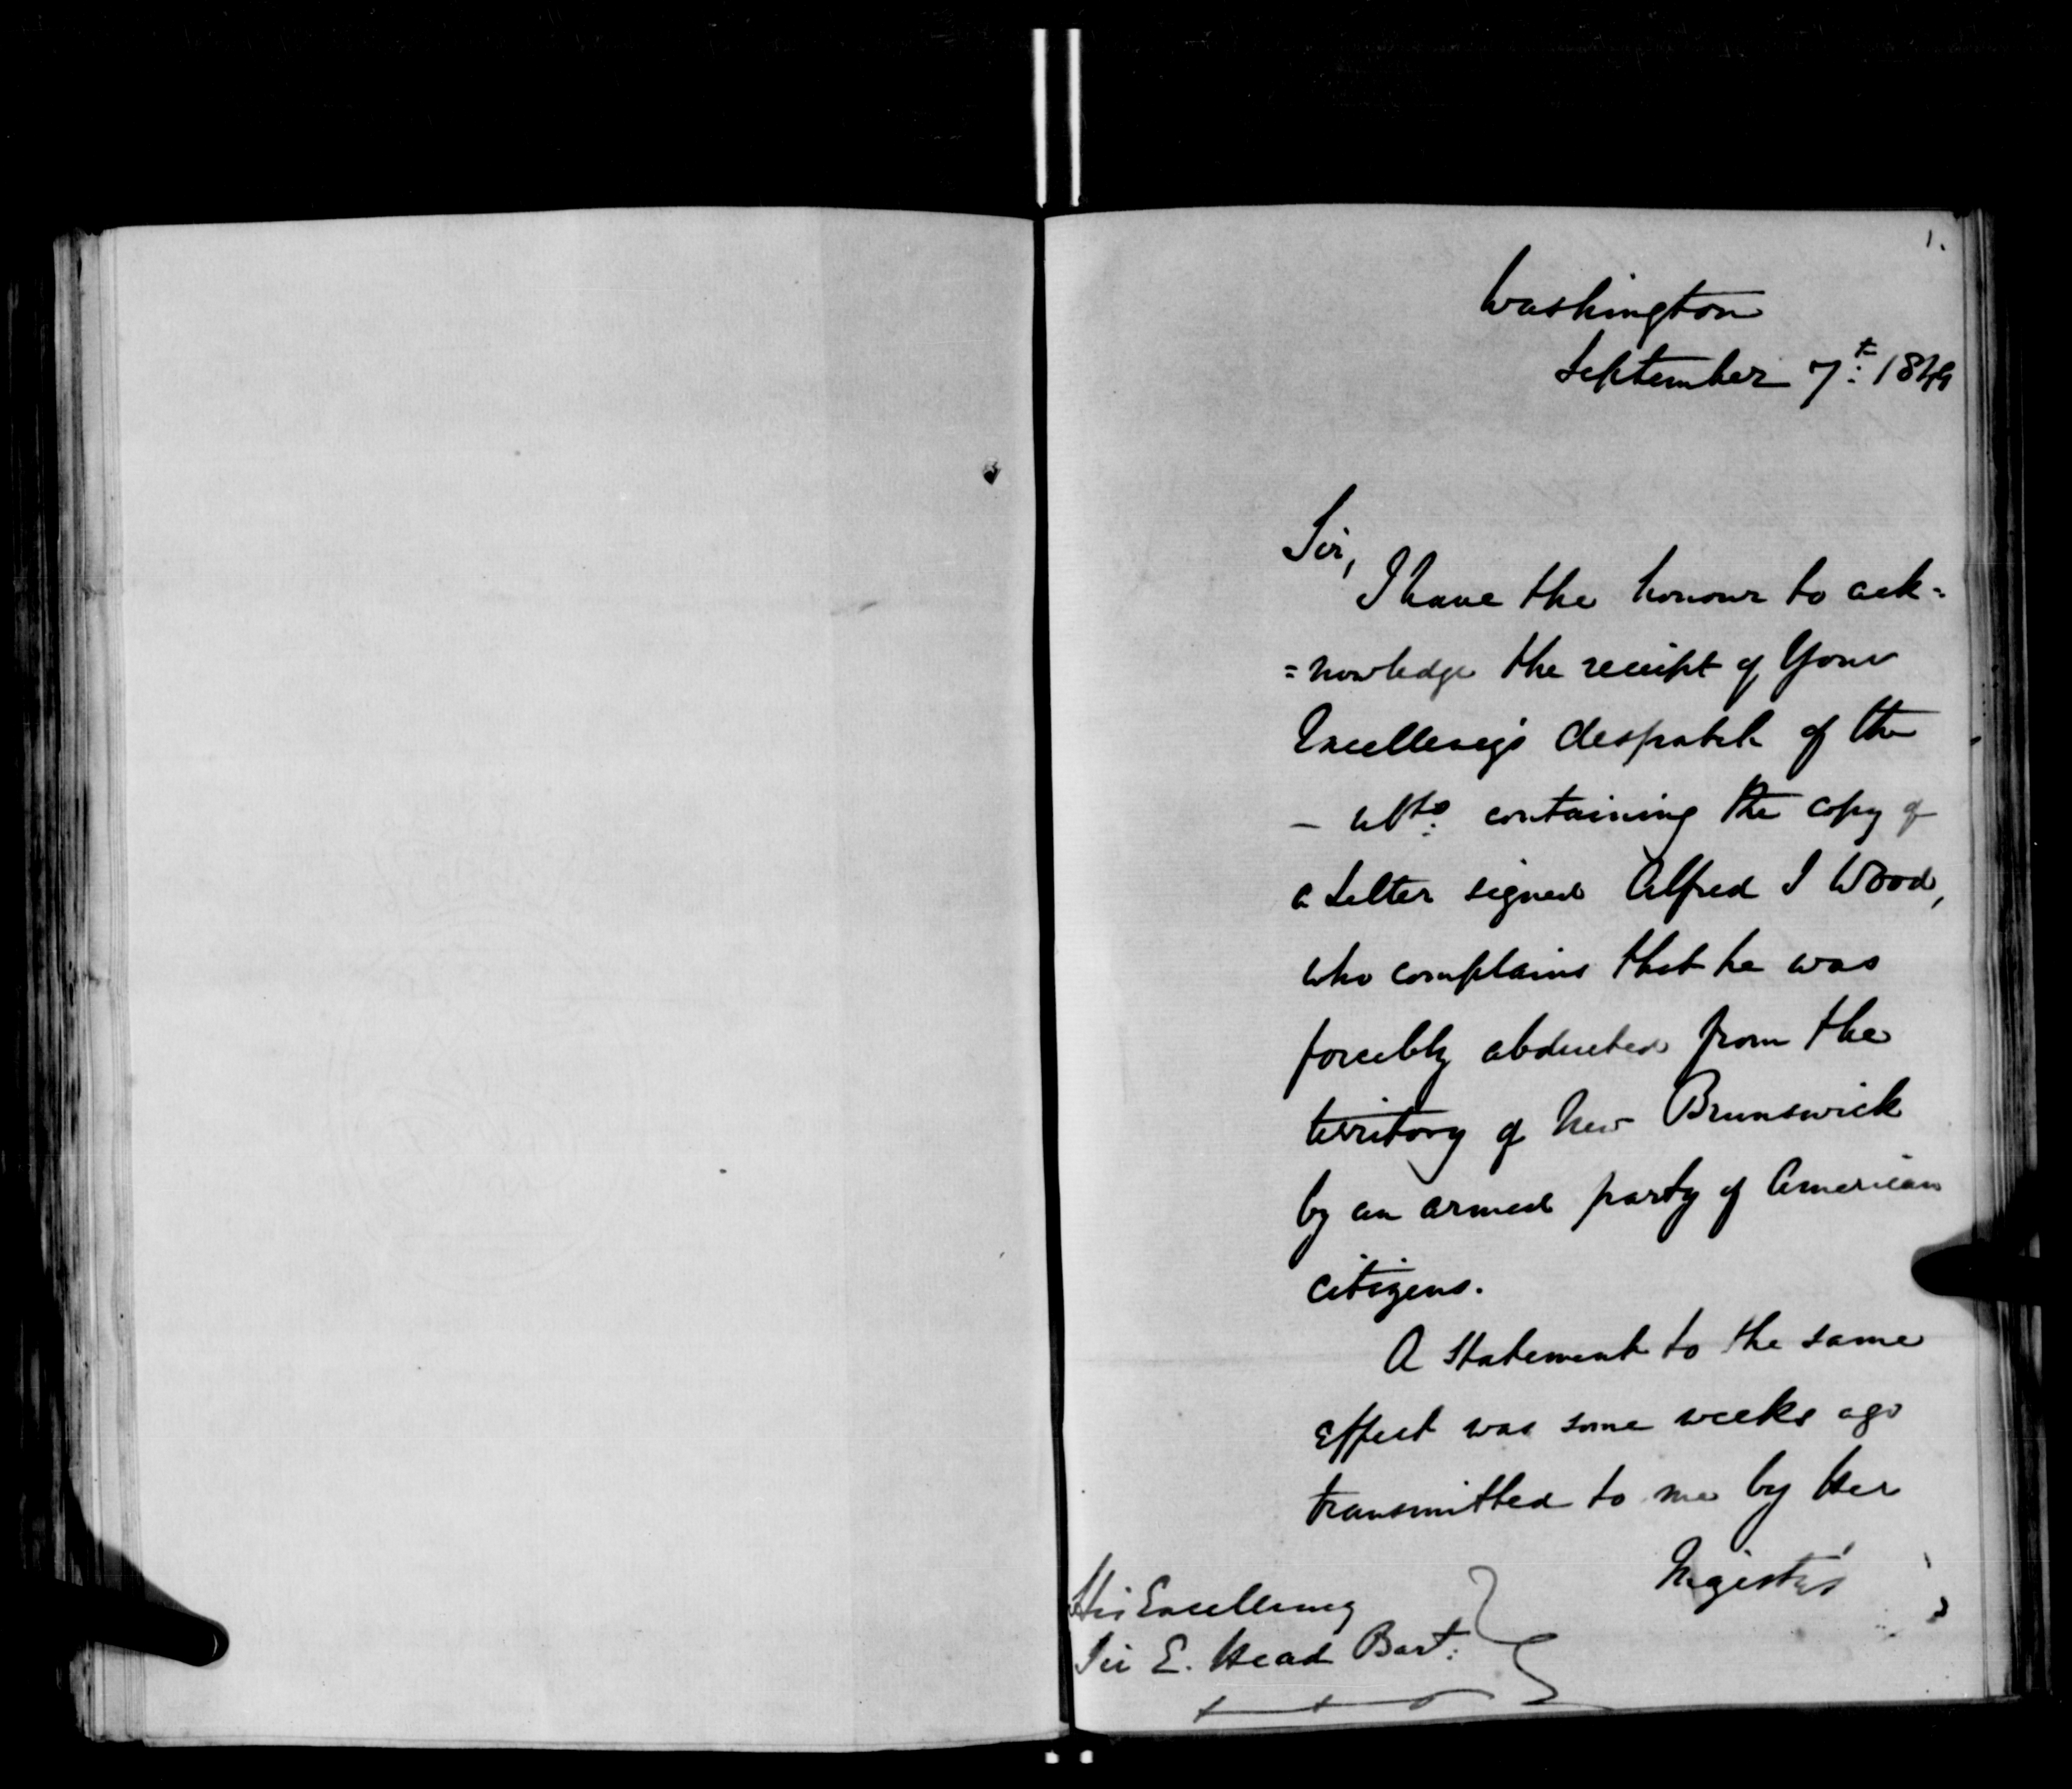 1.
Washington
September 7th: 1849
Sir,
I have the honour to ack=
=nowledge the receipt of Your
Excellency's despatch of the
– ulto: containing the copy of
a Letter signed Alfred I Wood,
who complains that he was
forcibly abducted from the
territory of New Brunswick
by an armed party of American
citizens.
A statement to the same
effect was some weeks ago
transmitted to me by Her
Majesty's
His Excellency
Sir E. Head Bart: